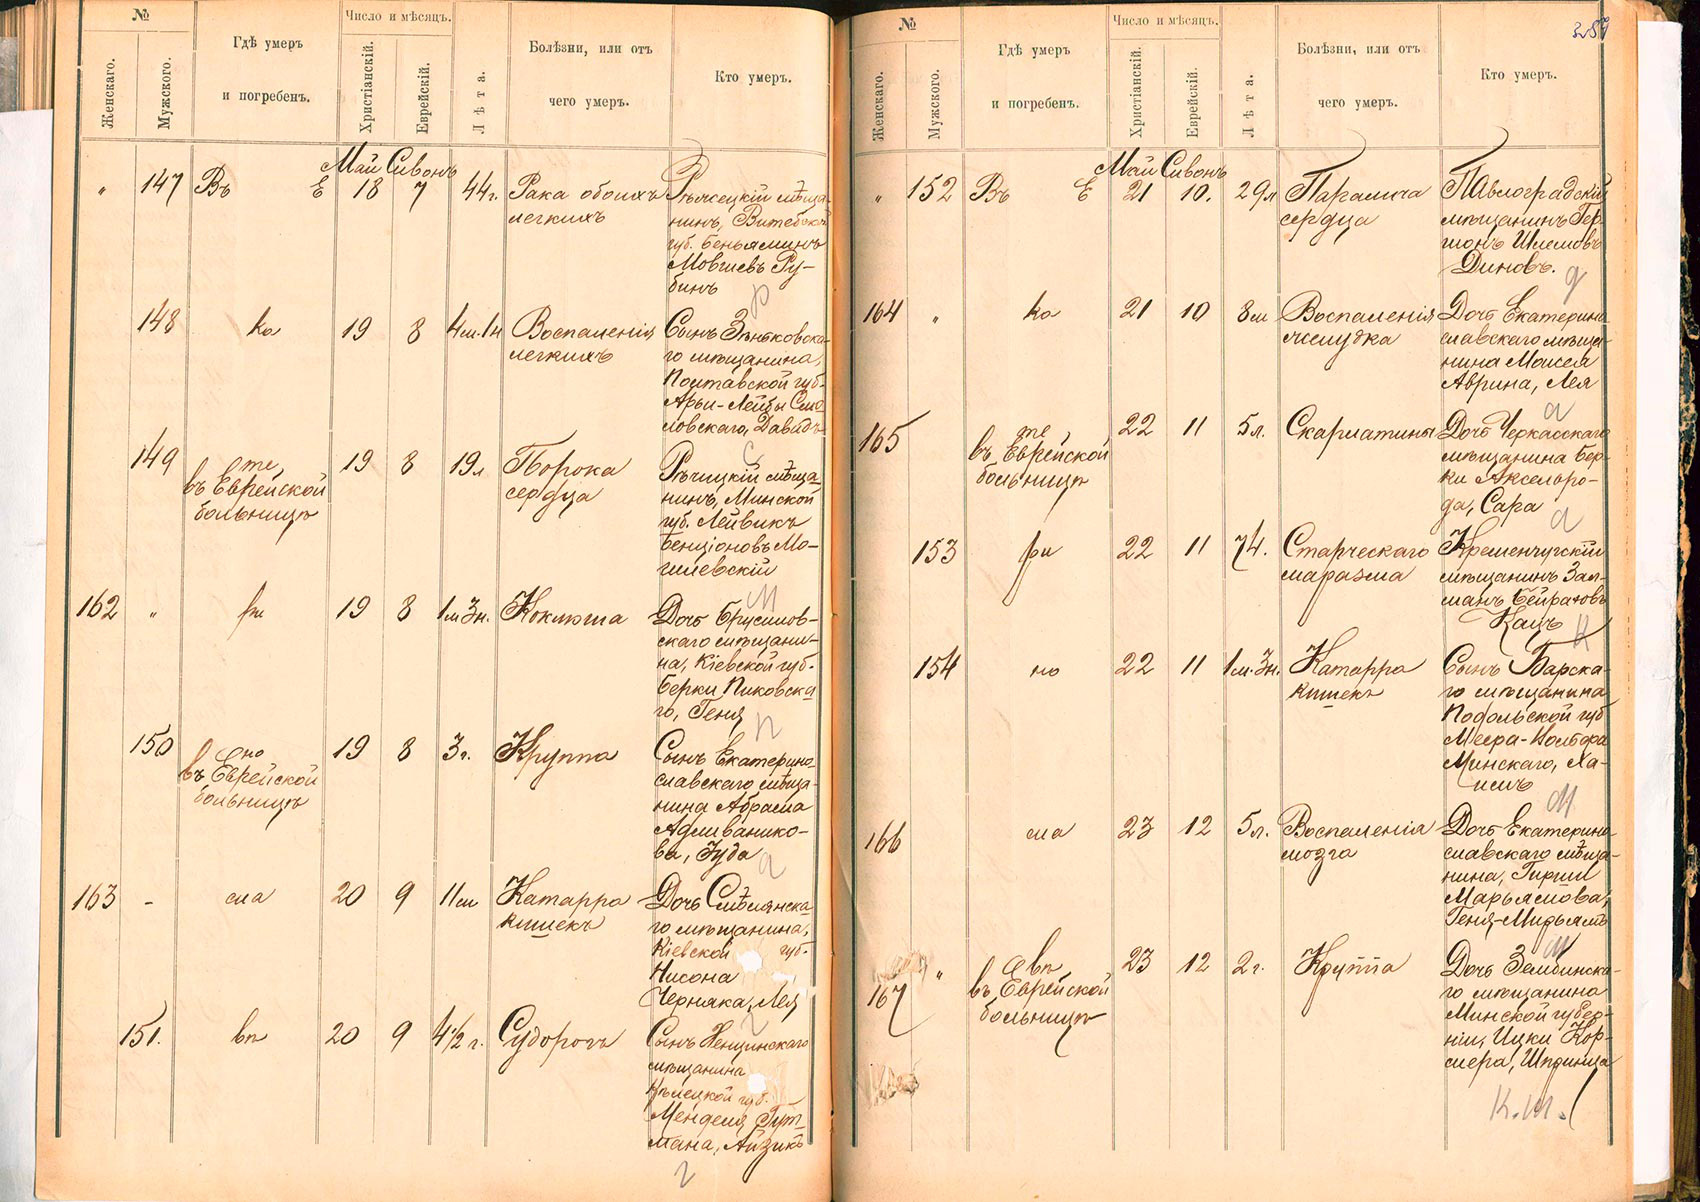 №
Женскаго.
Мужского.
Гдѣ умеръ
и погребенъ.
Число и мѣсяцъ.
Христіанскій.
Еврейскій.
Лѣта.
Болѣзни, или отъ
чего умеръ.
Кто умеръ.
Май Сивонъ
" 147 Въ Е 18 7 44г. Рака обоихъ
легкихъ
мѣща-
нинъ, Витебской
губ. Беньяминъ
Мовшевъ Ру-
бинъ
р
148 ка 19 8 4м. 1н Воспаленія
легкихъ
Сынъ Зѣньковска-
го мѣщанина,
Полтавской губ.
Арьи-Лейбы Смо-
ловскаго, Давидъ
с
149 те
въ Еврейской
больницѣ
19 8 19л Порока
сердца
Рѣчицкій мѣща-
нинъ, Минской
губ. Лейвикъ
Бенціоновъ Мо-
гилевскій
М
162 " ри 19 8 1м 3н. Коклюша
Дочь Брусилов-
скаго мѣщани-
на, Кіевской губ.
Берки Пиковска-
го, Геня
п
150 но
въ Еврейской
больницѣ
19 8 3г. Круппа
Сынъ Екатерино-
славскаго мѣща-
нина Абрама
Адливанико-
ва, Іуда
а
163 - сла 20 9 11м Катарра
кишекъ
Дочь Смѣлянска-
го мѣщанина,
Кіевской губ.
Нисона
Черняка, Лея
151. вп 20 9 4½ г. Судорогъ
Сынъ
мѣщанина
Кѣлецкой губ.
Менделя Гут-
мана, Айзикъ
г
289
№
Женскаго.
Мужского.
Гдѣ умеръ
и погребенъ.
Число и мѣсяцъ.
Христіанскій.
Еврейскій.
Лѣта.
Болѣзни, или отъ
чего умеръ.
Кто умеръ.
Май Сивонъ
" 152 Въ Е 21 10. 29л Паралича
сердца
Павлоградскій
мѣщанинъ Гер-
шонъ Шлемовъ
Диновъ.
д
164 " ка 21 10 8м Воспаленія
желудка
Дочь Екатерино-
славскаго мѣща-
нина Моисея
Аврина, Лея
а
165 те
въ Еврейской
больницѣ
22 11 5л. Скарлатины
Дочь Черкасскаго
мѣщанина Бер-
ки Аксельро-
да, Сара
а
153 ри 22 11 74. Старческаго
маразма
Кременчугскій
мѣщанинъ Зал-
манъ
Кацъ
К
154 но 22 11 1м. 3н. Катарра
кишекъ
Сынъ Барска-
го мѣщанина
Подольской губ
Меера-Вольфа
Минскаго, Ха-
имъ
М
166 сла 23 12 5л. Воспаленія
мозга
Дочь Екатерино-
славскаго мѣща-
нина, Гирши
Марьямова,
Геня-Мирьямъ
М
" вп
167 въ Еврейской
больницѣ
23 12 2г. Круппа
Дочь Зембинска-
го мѣщанина
Минской губер-
ніи, Ицки Кор-
мера, Шпринца
К.М.